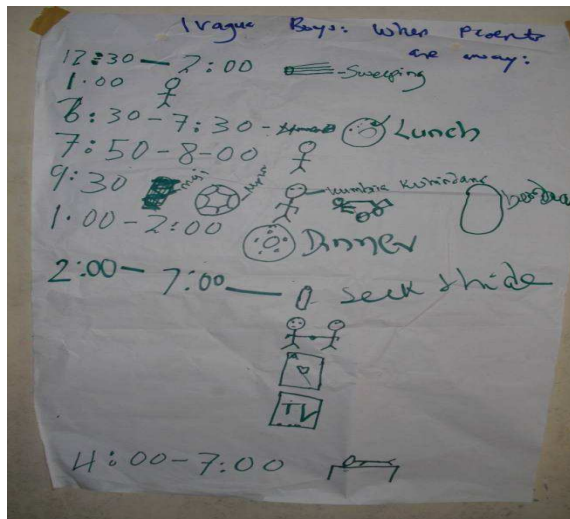 Iragua Boys: When Parents
are away:
12:30 — 2:00 - Sweeping
1.00
6:30 - 7:30 - Lunch
7:50 - 8-00
9:30 maji kukimbia kushindana
1.00 - 2:00
Dinner
2:00 — 7:00 — Seek & hide
TV
4:00 - 7:00